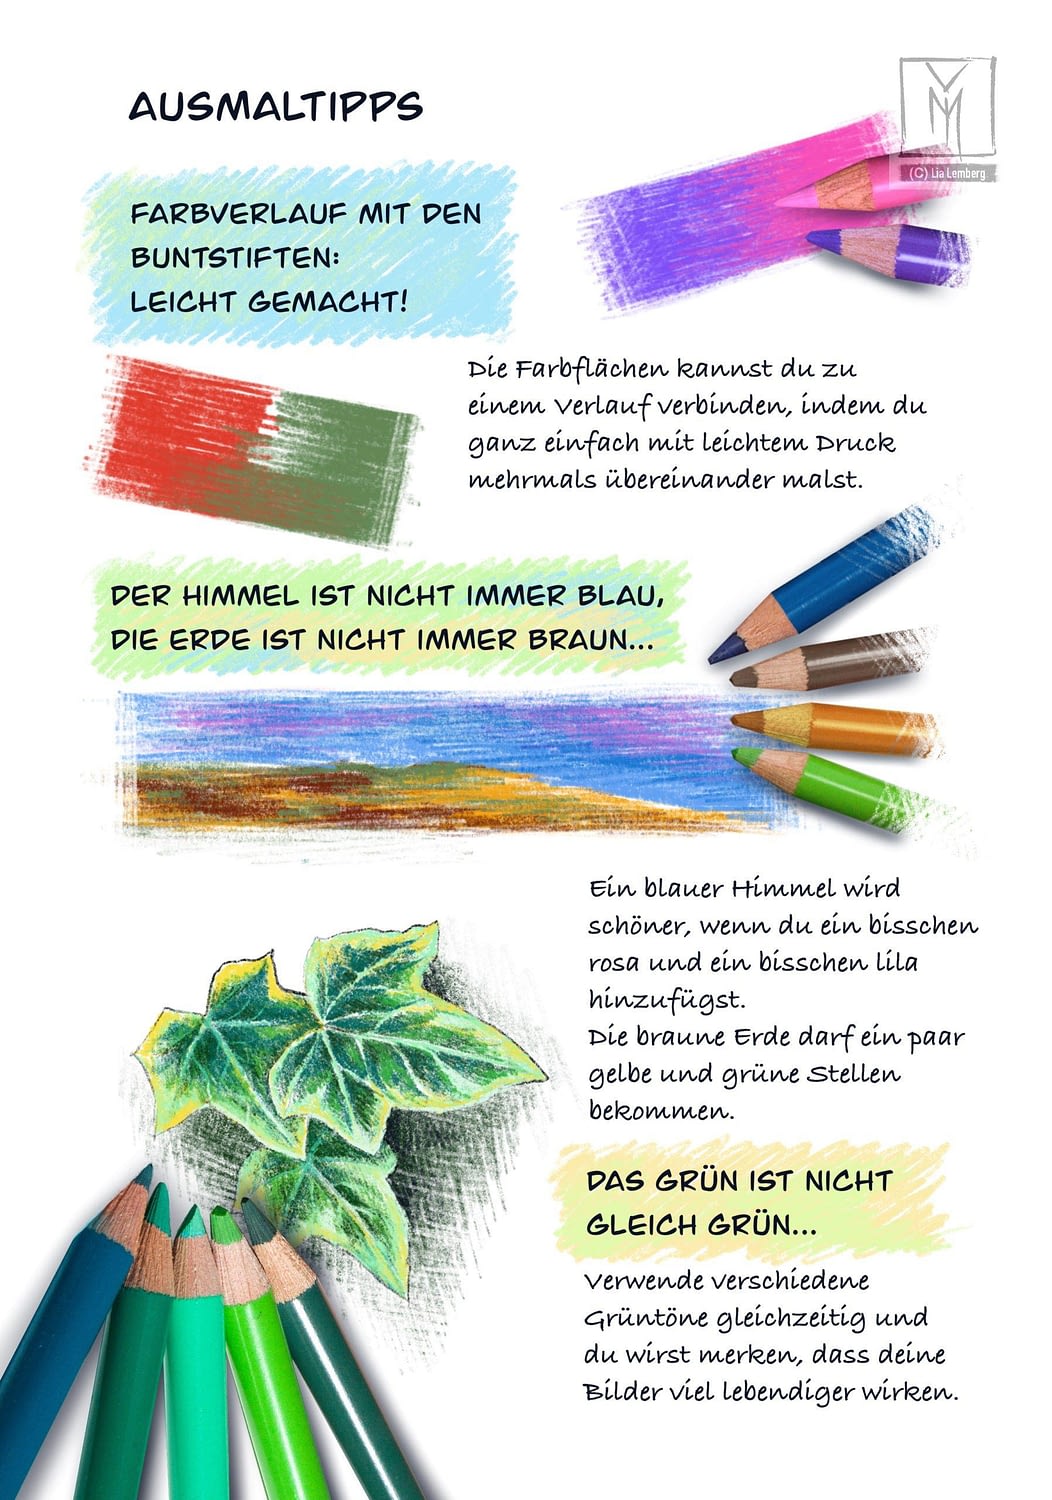 AUSMALTIPPS
(C) Lia Lemberg
FARBVERLAUF MIT DEN
BUNTSTIFTEN:
LEICHT GEMACHT!
Die Farbflächen kannst du zu
einem Verlauf verbinden, indem du
ganz einfach mit leichtem Druck
mehrmals übereinander malst.
DER HIMMEL IST NICHT IMMER BLAU,
DIE ERDE IST NICHT IMMER BRAUN...
Ein blauer Himmel wird
schöner, wenn du ein bisschen
rosa und ein bisschen lila
hinzufügst.
Die braune Erde darf ein paar
gelbe und grüne Stellen
bekommen.
DAS GRÜN IST NICHT
GLEICH GRÜN...
Verwende verschiedene
Grüntöne gleichzeitig und
du wirst merken, dass deine
Bilder viel lebendiger wirken.